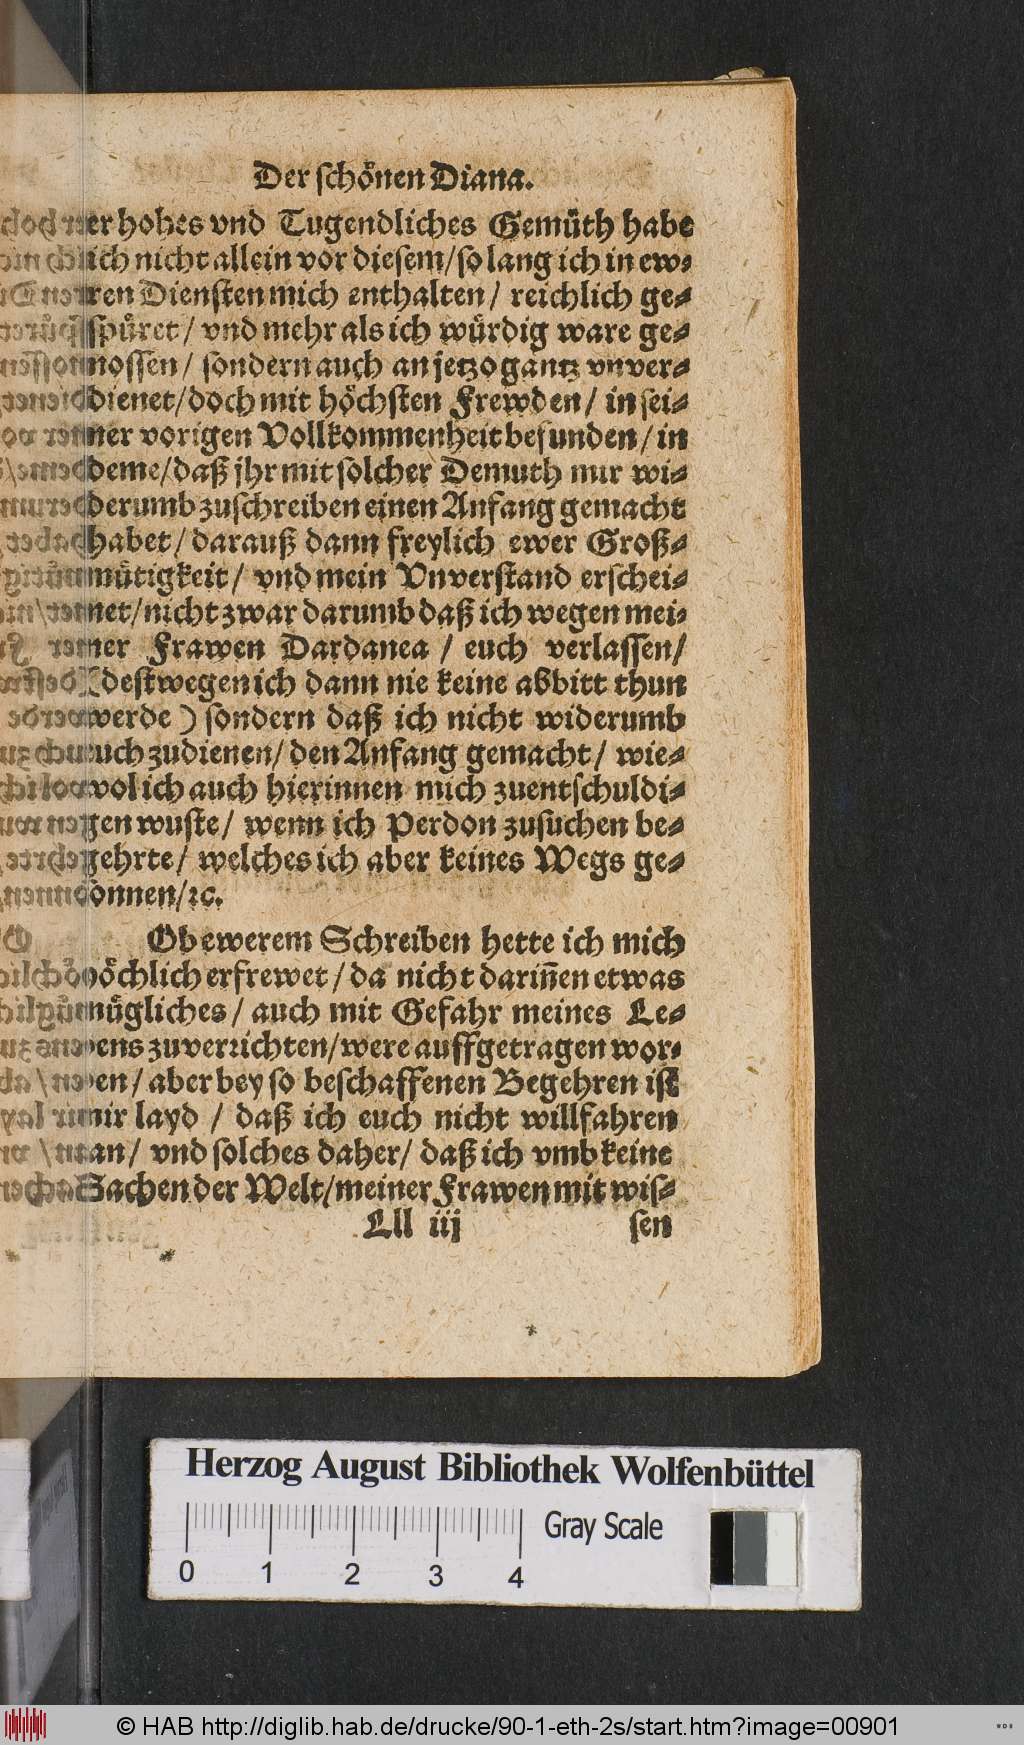 Der schönen Diana.
er hohes vnd Tugendliches Gemüth habe
ich nicht allein vor diesem/ so lang ich in ew-
ren Diensten mich enthalten/ reichlich ge-
spüret/ vnd mehr als ich würdig ware ge-
nossen/ sondern auch an jetzo gantz vnver-
dienet/ doch mit höchsten Frewden/ in sei-
ner vorigen Vollkommenheit befunden/ in
deme/ daß jhr mit solcher Demuth mir wi-
derumb zuschreiben einen Anfang gemacht
habet/ darauß dann freylich ewer Groß-
mütigkeit/ vnd mein Vnverstand erschei-
net/ nicht zwar darumb daß ich wegen mei-
ner Frawen Dardanea / euch verlassen/
(destwegen ich dann nie keine abbitt thun
werde ) sondern daß ich nicht widerumb
uch zudienen/ den Anfang gemacht/ wie-
wol ich auch hierinnen mich zuentschuldi-
gen wuste/ wenn ich Perdon zusuchen be-
gehrte/ welches ich aber keines Wegs ge-
önnen/ ꝛc.
Ob ewerem Schreiben hette ich mich
öchlich erfrewet/ da nicht dariñen etwas
mügliches/ auch mit Gefahr meines Le-
bens zuverrichten/ were auffgetragen wor-
en/ aber bey so beschaffenen Begehren ist
mir layd / daß ich euch nicht willfahren
an/ vnd solches daher/ daß ich vmb keine
Sachen der Welt/ meiner Frawen mit wis-
Lll iij sen
Herzog August Bibliothek Wolfenbüttel
0 1 2 3 4 Gray Scale
© HAB http://diglib.hab.de/drucke/90-1-eth-2s/start.htm?image=00901